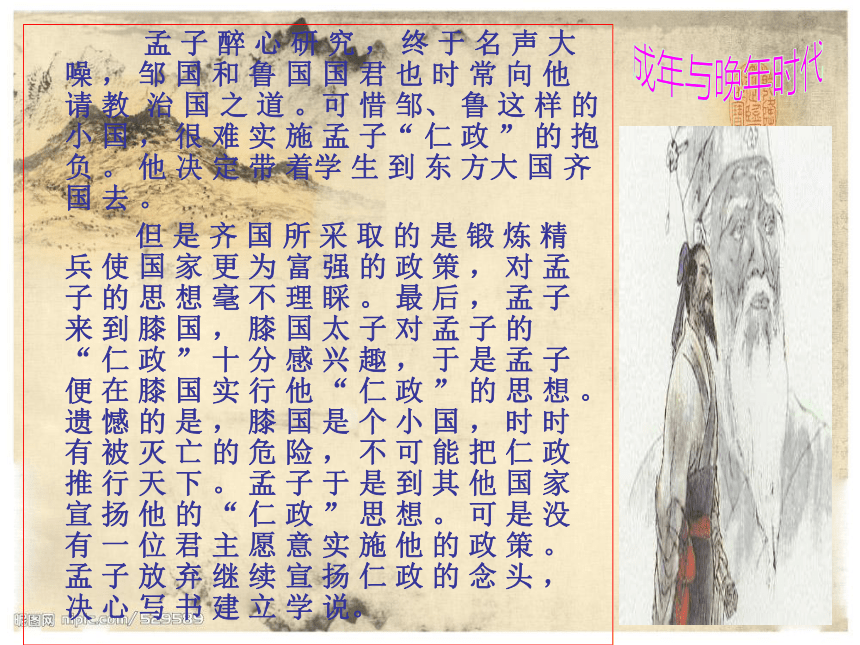 成年与晚年时代
孟子醉心研究，终于名声大
噪，邹国和鲁国国君也时常向他
请教 治国之道。可惜邹、鲁这样的
小国，很难实施孟子“仁政”的抱
负。他决定带着学生到东方大国齐
国去。
但是齐国所采取的是锻炼精
兵使国家更为富强的政策，对孟
子的思想毫不理睬。最后，孟子
来到滕国，滕国太子对孟子的
“仁政”十分感兴趣，于是孟子
便在滕国实行他“仁政”的思想。
遗憾的是，滕国是个小国，时时
有被灭亡的危险，不可能把仁政
推行天下。孟子于是到其他国家
宣扬他的“仁政”思想。可是没
有一位君主愿意实施他的政策。
孟子放弃继续宣扬仁政的念头，
决心写书建立学说。
昵图网 nipic.com/529589